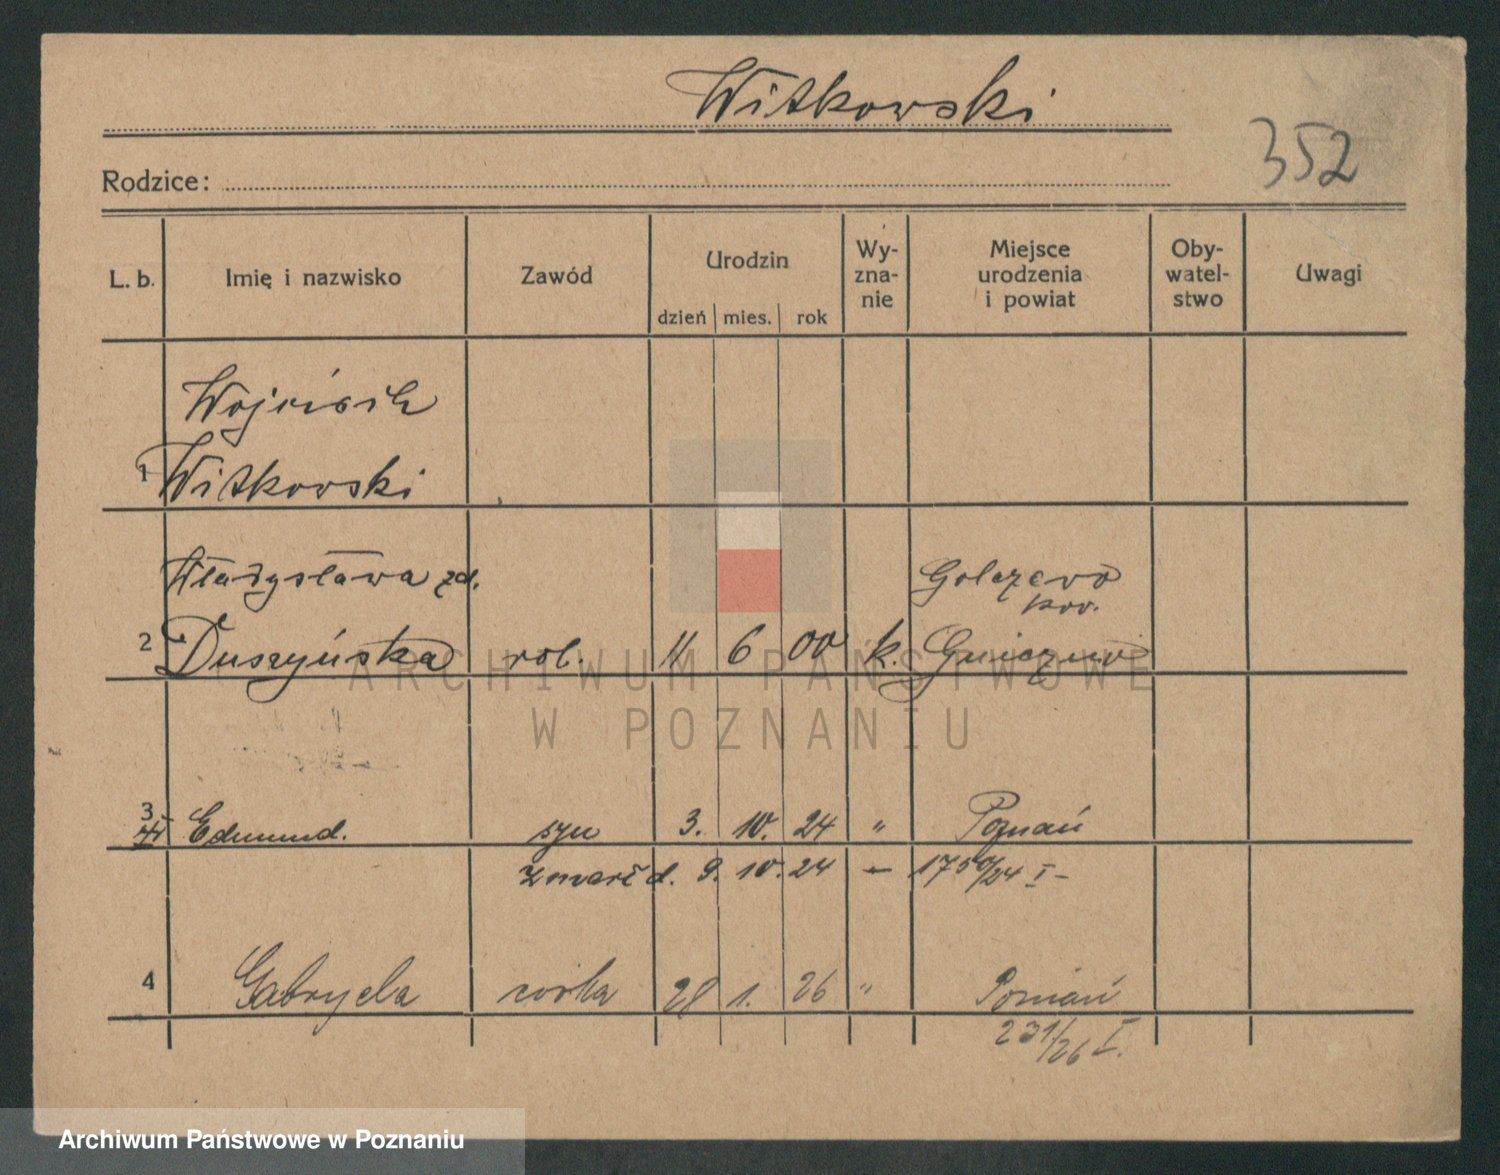 Witkowski
352
Rodzice:
L. b. Imię i nazwisko Zawód Urodzin dzień mies. rok Wy-zna-nie Miejsce urodzenia i powiat Oby-watel-stwo Uwagi
Wojciech
1 Witkowski
Władysława zd. Golczewo
pow.
2 Duszyńska rob. 11 6 00 k.
3 Edmund. syn 3. 10. 24 " Poznań
zmarł d. 9. 10. 24 – 1750/24 I –
4 Gabryela córka 28 1. 26 " Poznań
231/26 I.
ARCHIWUM PAŃSTWOWE
W POZNANIU
Archiwum Państwowe w Poznaniu